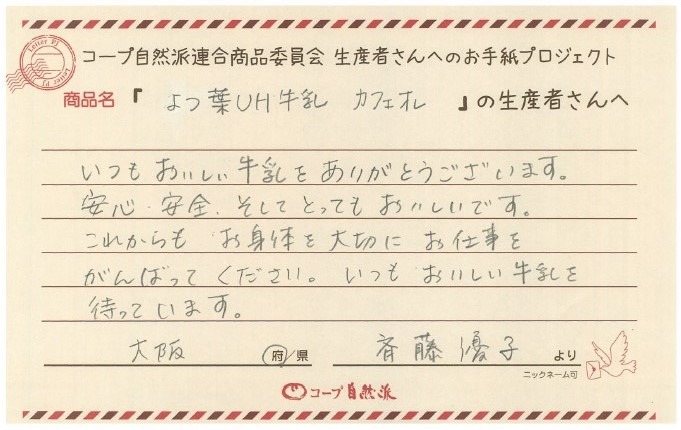 Letter PJ
Letter PJ
コープ自然派連合商品委員会 生産者さんへのお手紙プロジェクト
商品名『 よつ葉UH牛乳 カフェオレ 』の生産者さんへ
いつもおいしい牛乳をありがとうございます。
安心・安全、そしてとってもおいしいです。
これからも お身体を大切に お仕事を
がんばってください。いつも おいしい牛乳を
待っています。
大阪 府/県 斉藤優子 より
ニックネーム可
コープ自然派